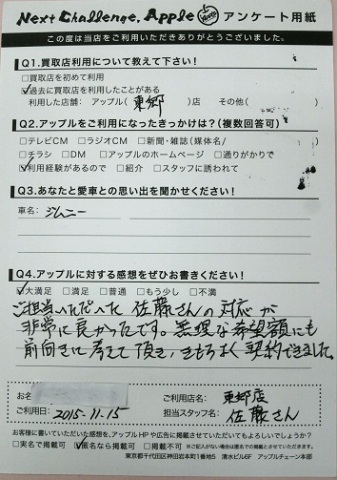 Next Challenge. Apple アンケート用紙
この度は当店をご利用いただきありがとうございました。
Q1.買取店利用について教えて下さい!
□買取店を初めて利用
☑過去に買取店を利用したことがある
利用した店舗: アップル( 東郷 )店 その他( )
Q2.アップルをご利用になったきっかけは?(複数回答可)
□テレビCM □ラジオCM □新聞・雑誌(媒体名/ )
□チラシ □DM □アップルのホームページ □通りがかりで
☑利用経験があるので □紹介 □スタッフに誘われて
Q3.あなたと愛車との思い出を聞かせください!
車名: ジムニー
Q4.アップルに対する感想をぜひお書きください!
☑大満足 □満足 □普通 □もう少し □不満
ご担当いただいた 佐藤さんの対応が
非常に良かったです。無理な希望額にも
前向きに考えて頂き、きもちよく契約できました。
お名
ご利用店名: 東郷店
ご利用日: 2015-11-15
担当スタッフ名: 佐藤さん
お客様に書いていただいた感想を、アップルHPや広告に掲載させていただいてもよろしいでしょうか?
□実名で掲載可 ☑匿名なら掲載可 □不可
東京都千代田区神田岩本町1番地5 清水ビル6F アップルチェーン本部